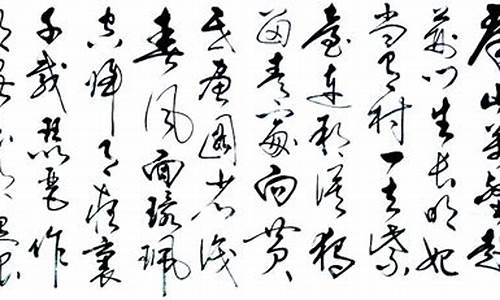 群山萬壑赴
荆門生長明妃
尚有村一去紫
臺連朔漠獨
留青冢向黄
昏畫圖省識
春風面環珮
空歸月夜魂
千載琵琶作